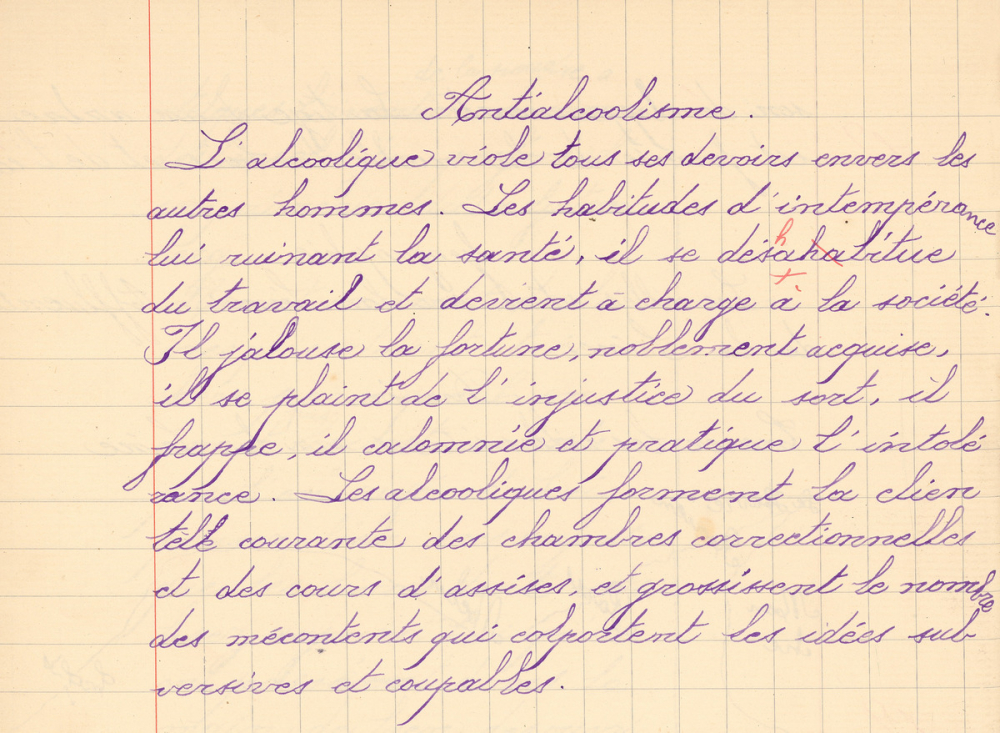 Antialcoolisme.
L'alcoolique viole tous ses devoirs envers les
autres hommes. Les habitudes d'intempérance
lui ruinant la santé, il se désahabitue
du travail et devient à charge à la société.
Il jalouse la fortune, noblement acquise,
il se plaint de l'injustice du sort, il
frappe, il calomnie et pratique l'intolé
rance. Les alcooliques forment la clien
tèle courante des chambres correctionnelles
et des cours d'assises, et grossissent le nombre
des mécontents qui colportent les idées sub-
versives et coupables.